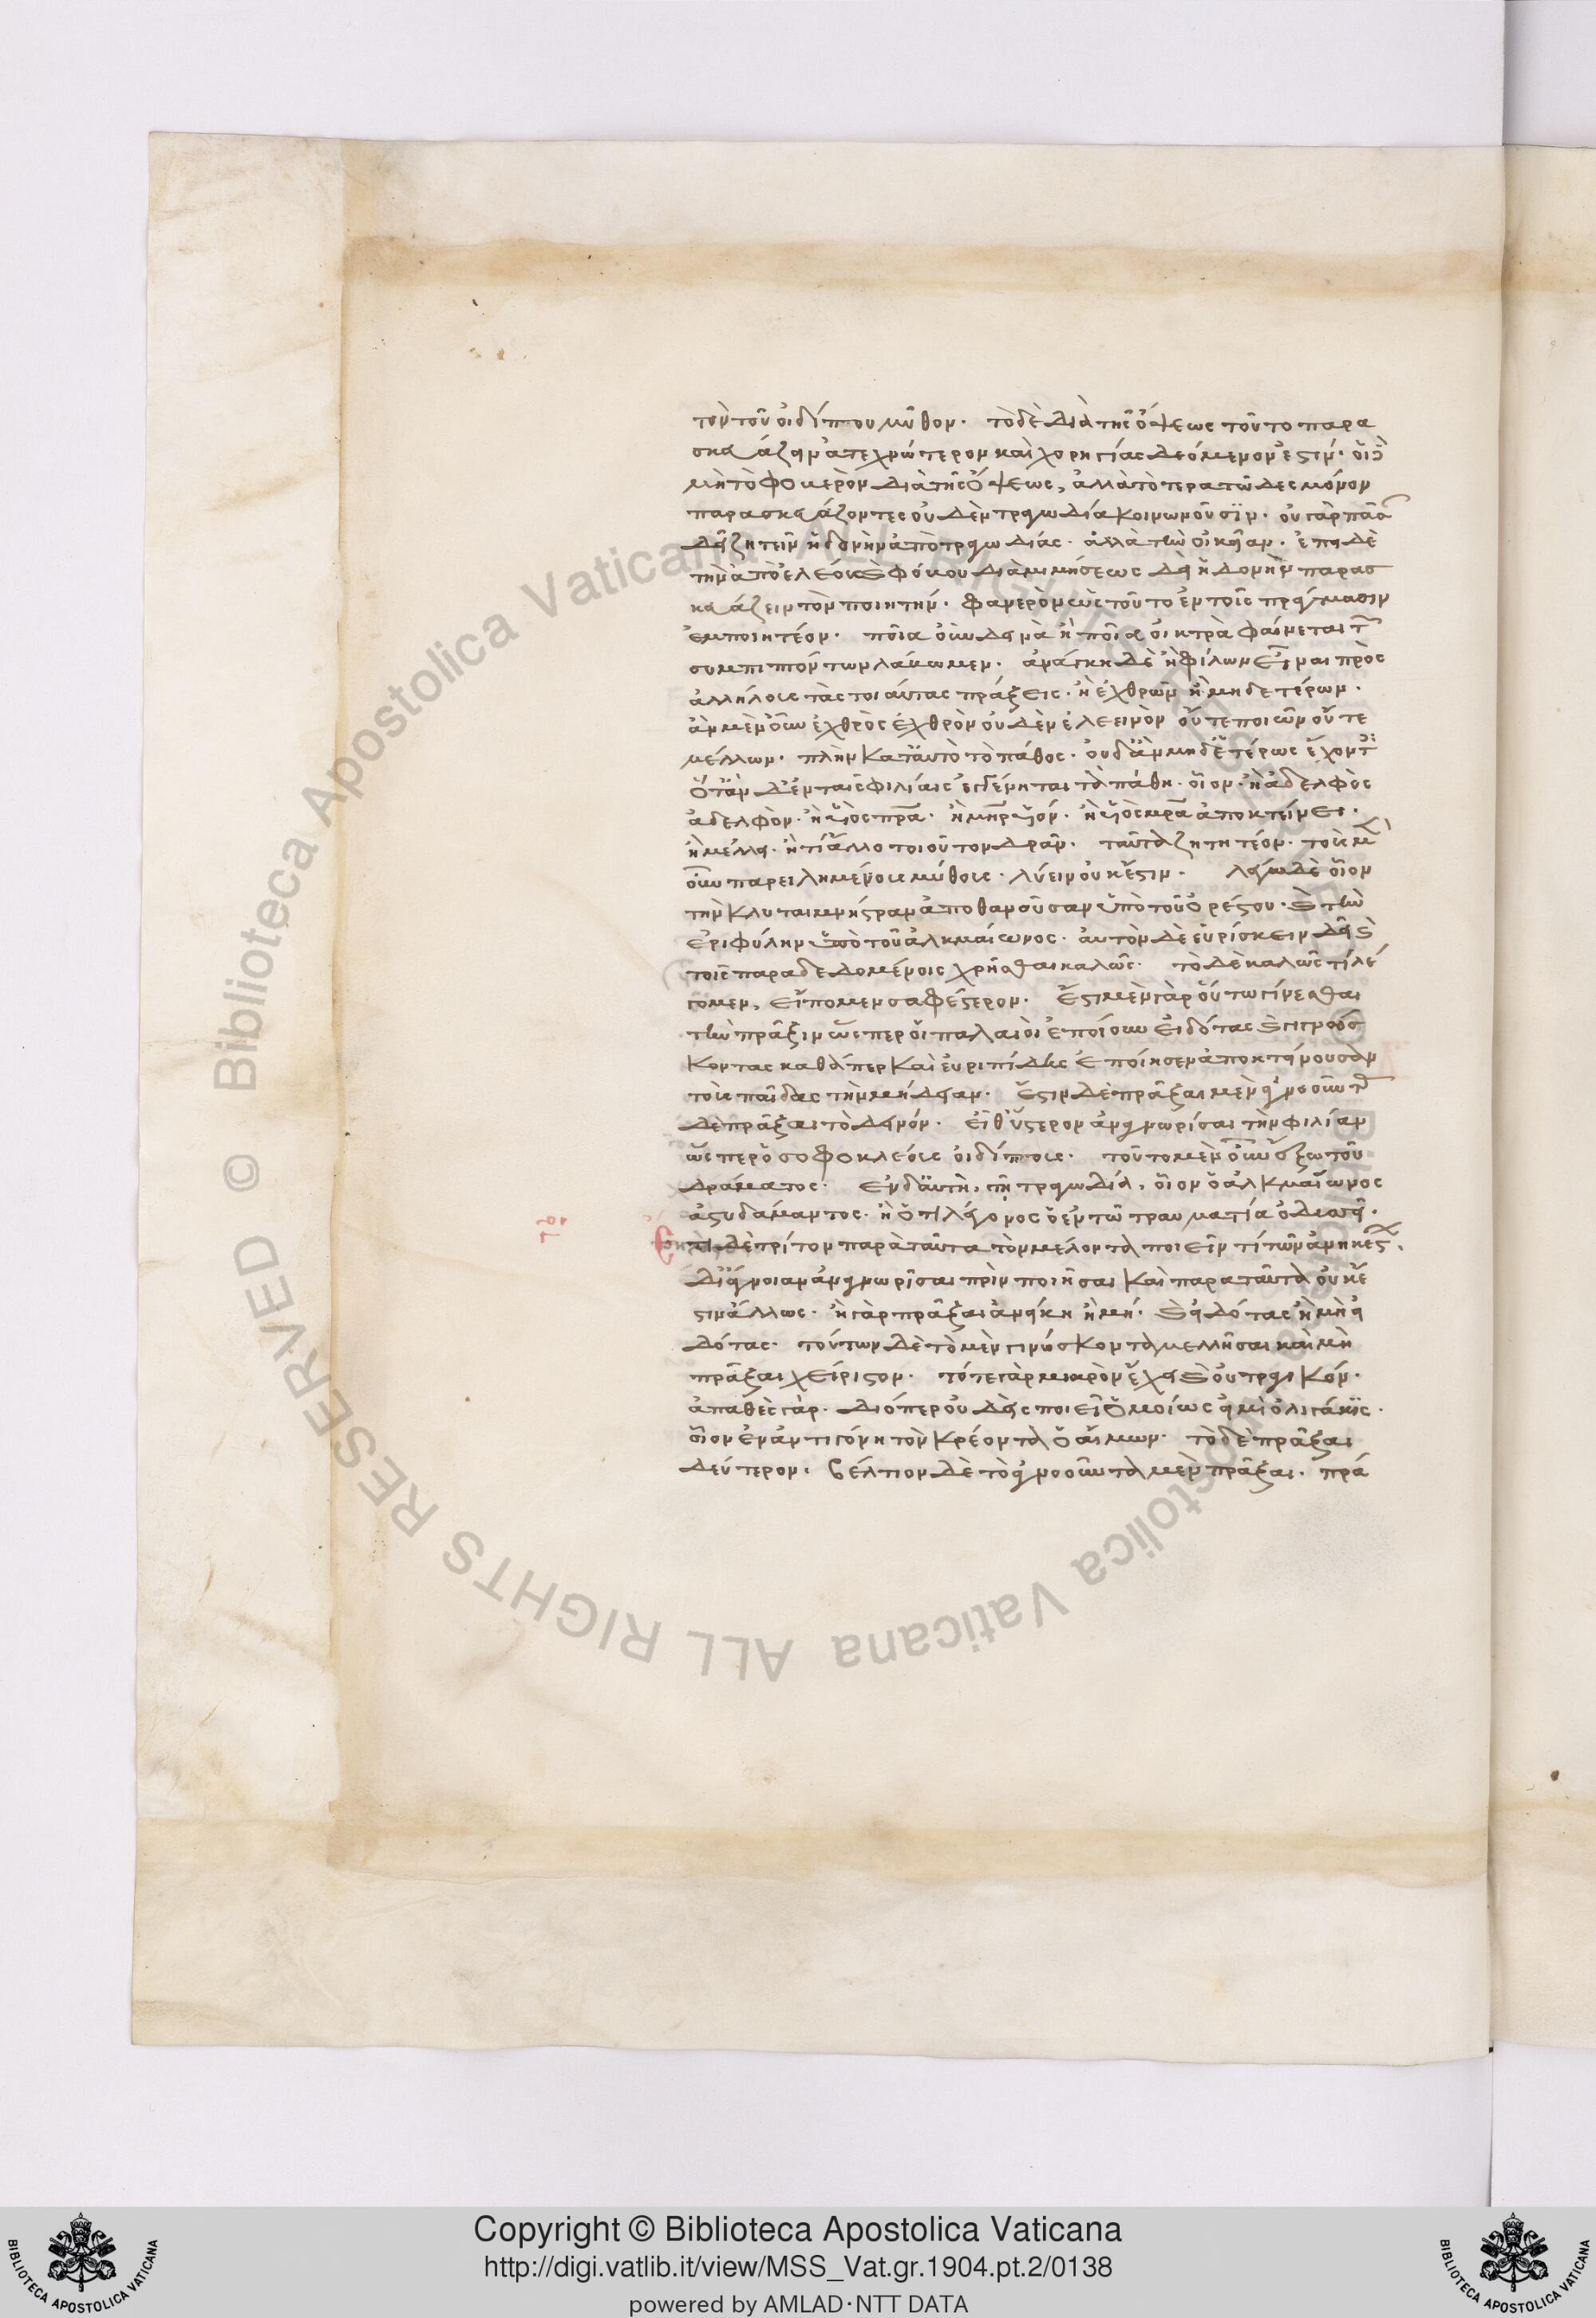 τὸν τοῦ οἰδίπου μῦθον· τὸ δὲ διὰ τῆς ὄψεως τοῦτο παρα
σκευάζειν ἀτεχνώτερον καὶ χορηγίας δεόμενον ἐστίν· οἱ δὲ
μὴ τὸ φοβερὸν διὰ τῆς ὄψεως, ἀλλὰ τὸ τερατῶδες μόνον
παρασκευάζοντες οὐδὲν τραγωδία κοινωνοῦσιν· οὐ γὰρ πᾶσαν
δεῖ ζητεῖν ἡδονὴν ἀπὸ τραγωδίας· ἀλλὰ τὴν οἰκείαν· ἐπεὶ δὲ
τὴν ἀπὸ ἐλέου καὶ φόβου διὰ μιμήσεως δεῖ ἡδονὴν παρασ
κευάζειν τὸν ποιητήν· φανερὸν ὡς τοῦτο ἐν τοῖς πράγμασιν
ἐμποιητέον· ποῖα οὖν δεινὰ ἢ ποῖα οἰκτρὰ φαίνεται τῶν
συμπιπτόντων λάβωμεν· ἀνάγκη δὲ ἢ φίλων εἶναι πρὸς
ἀλλήλους τὰς τοιαύτας πράξεις· ἢ ἐχθρῶν ἢ μηδετέρων·
ἂν μὲν οὖν ἐχθρὸς ἐχθρὸν οὐδὲν ἐλεεινὸν οὔτε ποιῶν οὔτε
μέλλων· πλὴν κατ' αὐτὸ τὸ πάθος· οὐδ' ἂν μηδετέρως ἔχοντες
ὅταν δ' ἐν ταῖς φιλίαις ἐγγένηται τὰ πάθη· οἷον· ἢ ἀδελφὸς
ἀδελφὸν· ἢ υἱὸς πρα· ἢ μηρ υἱόν· ἢ υἱὸς μρα ἀποκτείνει·
ἢ μέλλει· ἤ τι ἄλλο τοιοῦτον δρᾶν· ταῦτα ζητητέον· τοὺς μὲν
οὖν παρειλημένους μύθους· λύειν οὐκ ἔστιν· λέγω δὲ οἷον
τὴν κλυταιμνήστραν ἀποθανοῦσαν ὑπὸ τοῦ ὀρέστου· καὶ τὴν
ἐριφύλην ὑπὸ τοῦ ἀλκμαίωνος· αὐτὸν δὲ εὑρίσκειν δεῖ καὶ
τοῖς παραδεδομένοις χρῆσθαι καλῶς· τὸ δὲ καλῶς τί λέ
γομεν, εἴπομεν σαφέστερον· ἔστι μὲν γὰρ οὕτω γίνεσθαι
τὴν πρᾶξιν ὥσπερ οἱ παλαιοὶ ἐποίουν εἰδότας καὶ γιγνώσ
κοντας καθάπερ καὶ εὐριπίδης ἐποίησεν ἀποκτείνουσαν
τοὺς παῖδας τὴν μήδειαν· ἔστιν δὲ πρᾶξαι μὲν ἀγνοοῦντας
δὲ πρᾶξαι τὸ δεινόν· εἶθ' ὕστερον ἀναγνωρίσαι τὴν φιλίαν
ὥσπερ ὁ σοφοκλέους οἰδίπους· τοῦτο μὲν οὖν ἔξω τοῦ
δράματος· ἐν δ' αὐτῆ, τῆ τραγωδία, οἷον ὁ ἀλκμαίωνος
ἀστυδάμαντος· ἢ ὁ τηλέγονος ὁ ἐν τῶ τραυματία ὀδυσσεῖ·
ἔτι δὲ τρίτον παρὰ ταῦτα τὸν μέλοντα ποιεῖν τι τῶν ἀνηκέστων
δι' ἄγνοιαν ἀναγνωρίσαι πρὶν ποιῆσαι καὶ παρὰ ταῦτα οὐκ ἔ
στιν ἄλλως· ἢ γὰρ πρᾶξαι ἀνάγκη ἢ μή· καὶ εἰδότας ἢ μὴ εἰ
δότας· τούτων δὲ τὸ μὲν γινώσκοντα μελλῆσαι καὶ μὴ
πρᾶξαι χείριστον· τό τε γὰρ μιαρὸν ἔχει καὶ οὐ τραγικόν·
ἀπαθὲς γάρ· διόπερ οὐδεὶς ποιεῖ ὁμοίως εἰ μὴ ὀλιγάκις·
οἷον ἐν ἀντιγόνη τὸν κρέοντα ὁ αἵμων· τὸ δὲ πρᾶξαι
δεύτερον· βέλτιον δὲ τὸ ἀγνοοῦντα μὲν πρᾶξαι· πρά
© Biblioteca Apostolica Vaticana ALL RIGHTS RESERVED
Copyright © Biblioteca Apostolica Vaticana
http://digi.vatlib.it/view/MSS_Vat.gr.1904.pt.2/0138
powered by AMLAD·NTT DATA
BIBLIOTECA APOSTOLICA VATICANA
BIBLIOTECA APOSTOLICA VATICANA